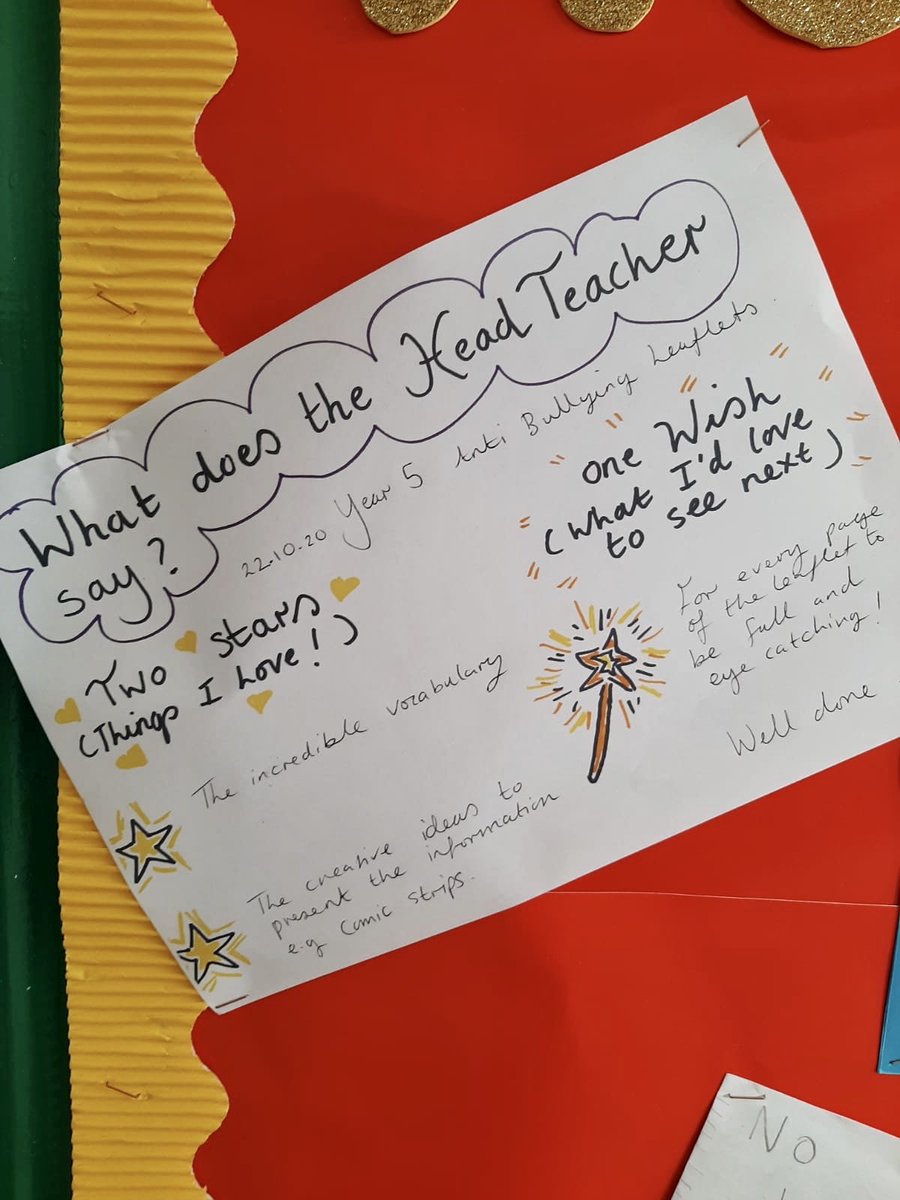 What does the Head Teacher
say?
22.10.20 Year 5 Anti Bullying Leaflets
Two stars
(Things I Love!)
The incredible vocabulary
The creative ideas to
present the information
e.g comic strips.
one Wish
(What I'd love
to see next)
For every page
of the leaflet to
be full and
eye catching!
Well done
No